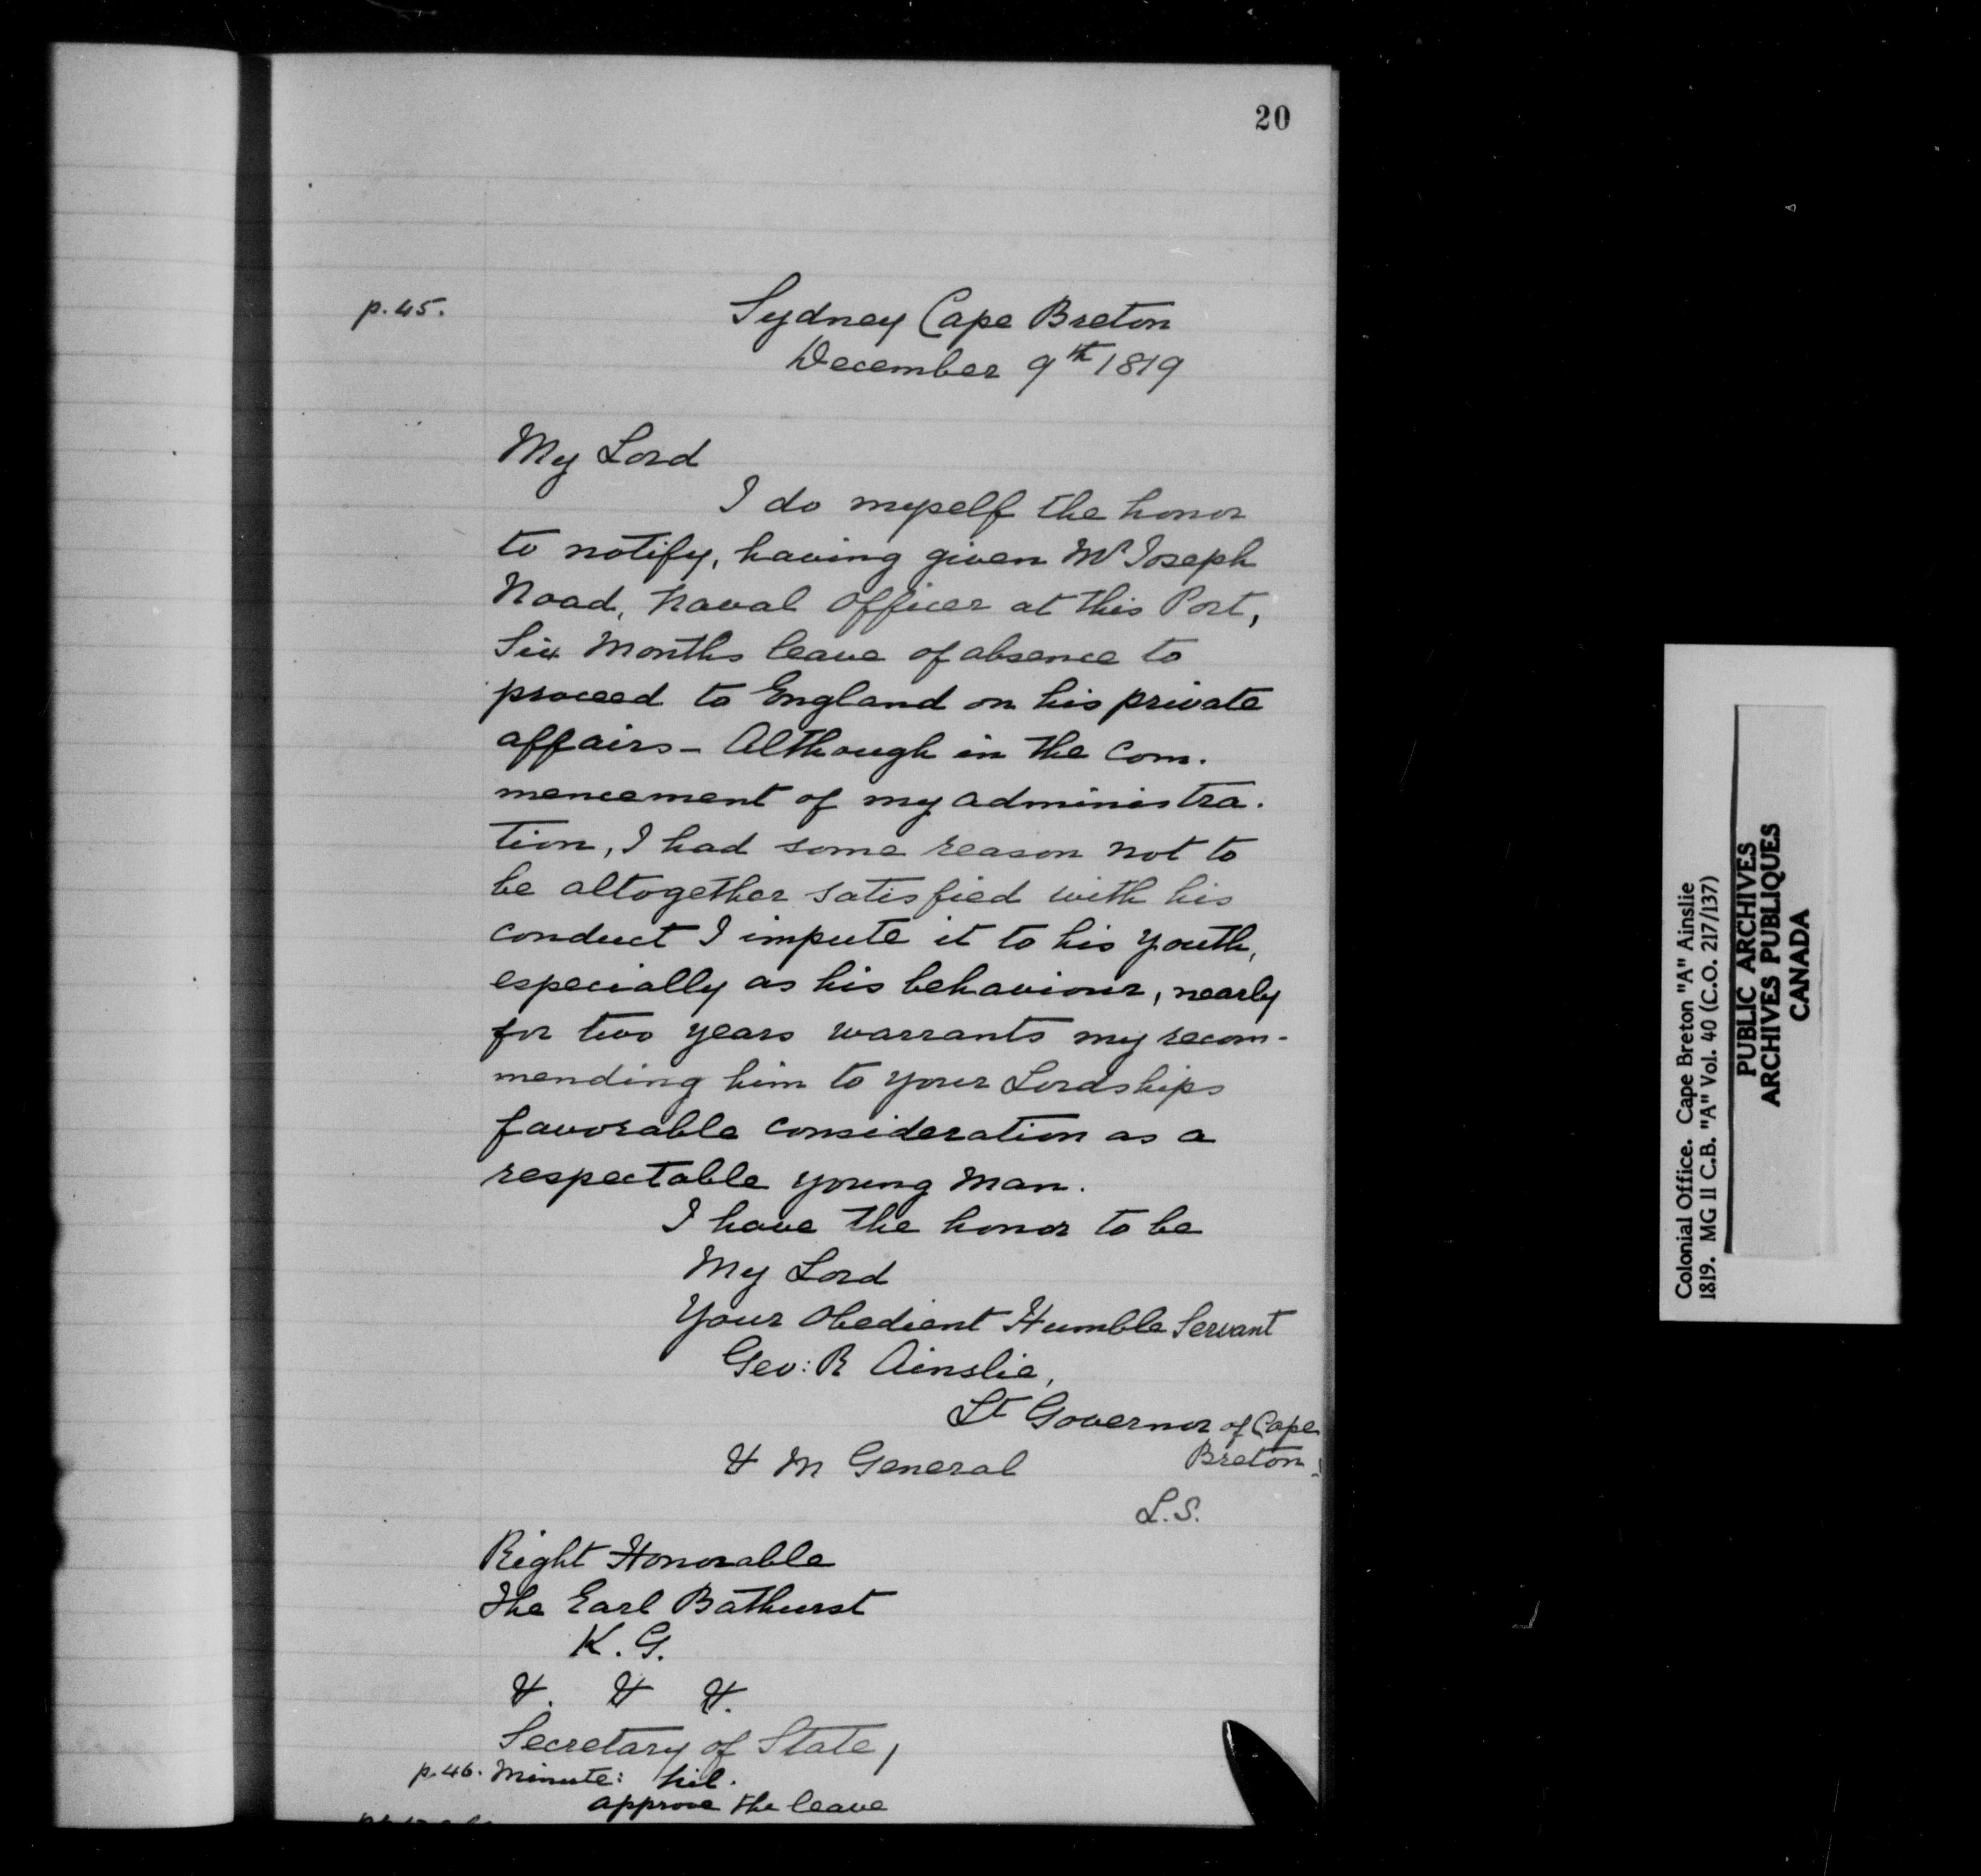 20
p. 45.
Sydney Cape Breton
December 9th 1819
My Lord
I do myself the honor
to notify, having given Mr Joseph
Noad, Naval Officer at this Port,
Six Months leave of absence to
proceed to England on his private
affairs - Although in the com.
mencement of my administra.
tion, I had some reason not to
be altogether satisfied with his
conduct I impute it to his youth,
especially as his behaviour, nearly
for two years warrants my recom-
mending him to your Lordships
favorable consideration as a
respectable young man.
I have the honor to be
My Lord
Your Obedient Humble Servant
Geo: R Ainslie,
Lt Governor of Cape
Breton.
& M General
L.S.
Right Honorable
The Earl Bathurst
K. G.
&. & &.
Secretary of State,
p. 46. Minute:
approve the leave
Colonial Office. Cape Breton "A" Ainslie
1819. MG 11 C.B. "A" Vol. 40 (C.O. 217/137)
PUBLIC ARCHIVES
ARCHIVES PUBLIQUES
CANADA